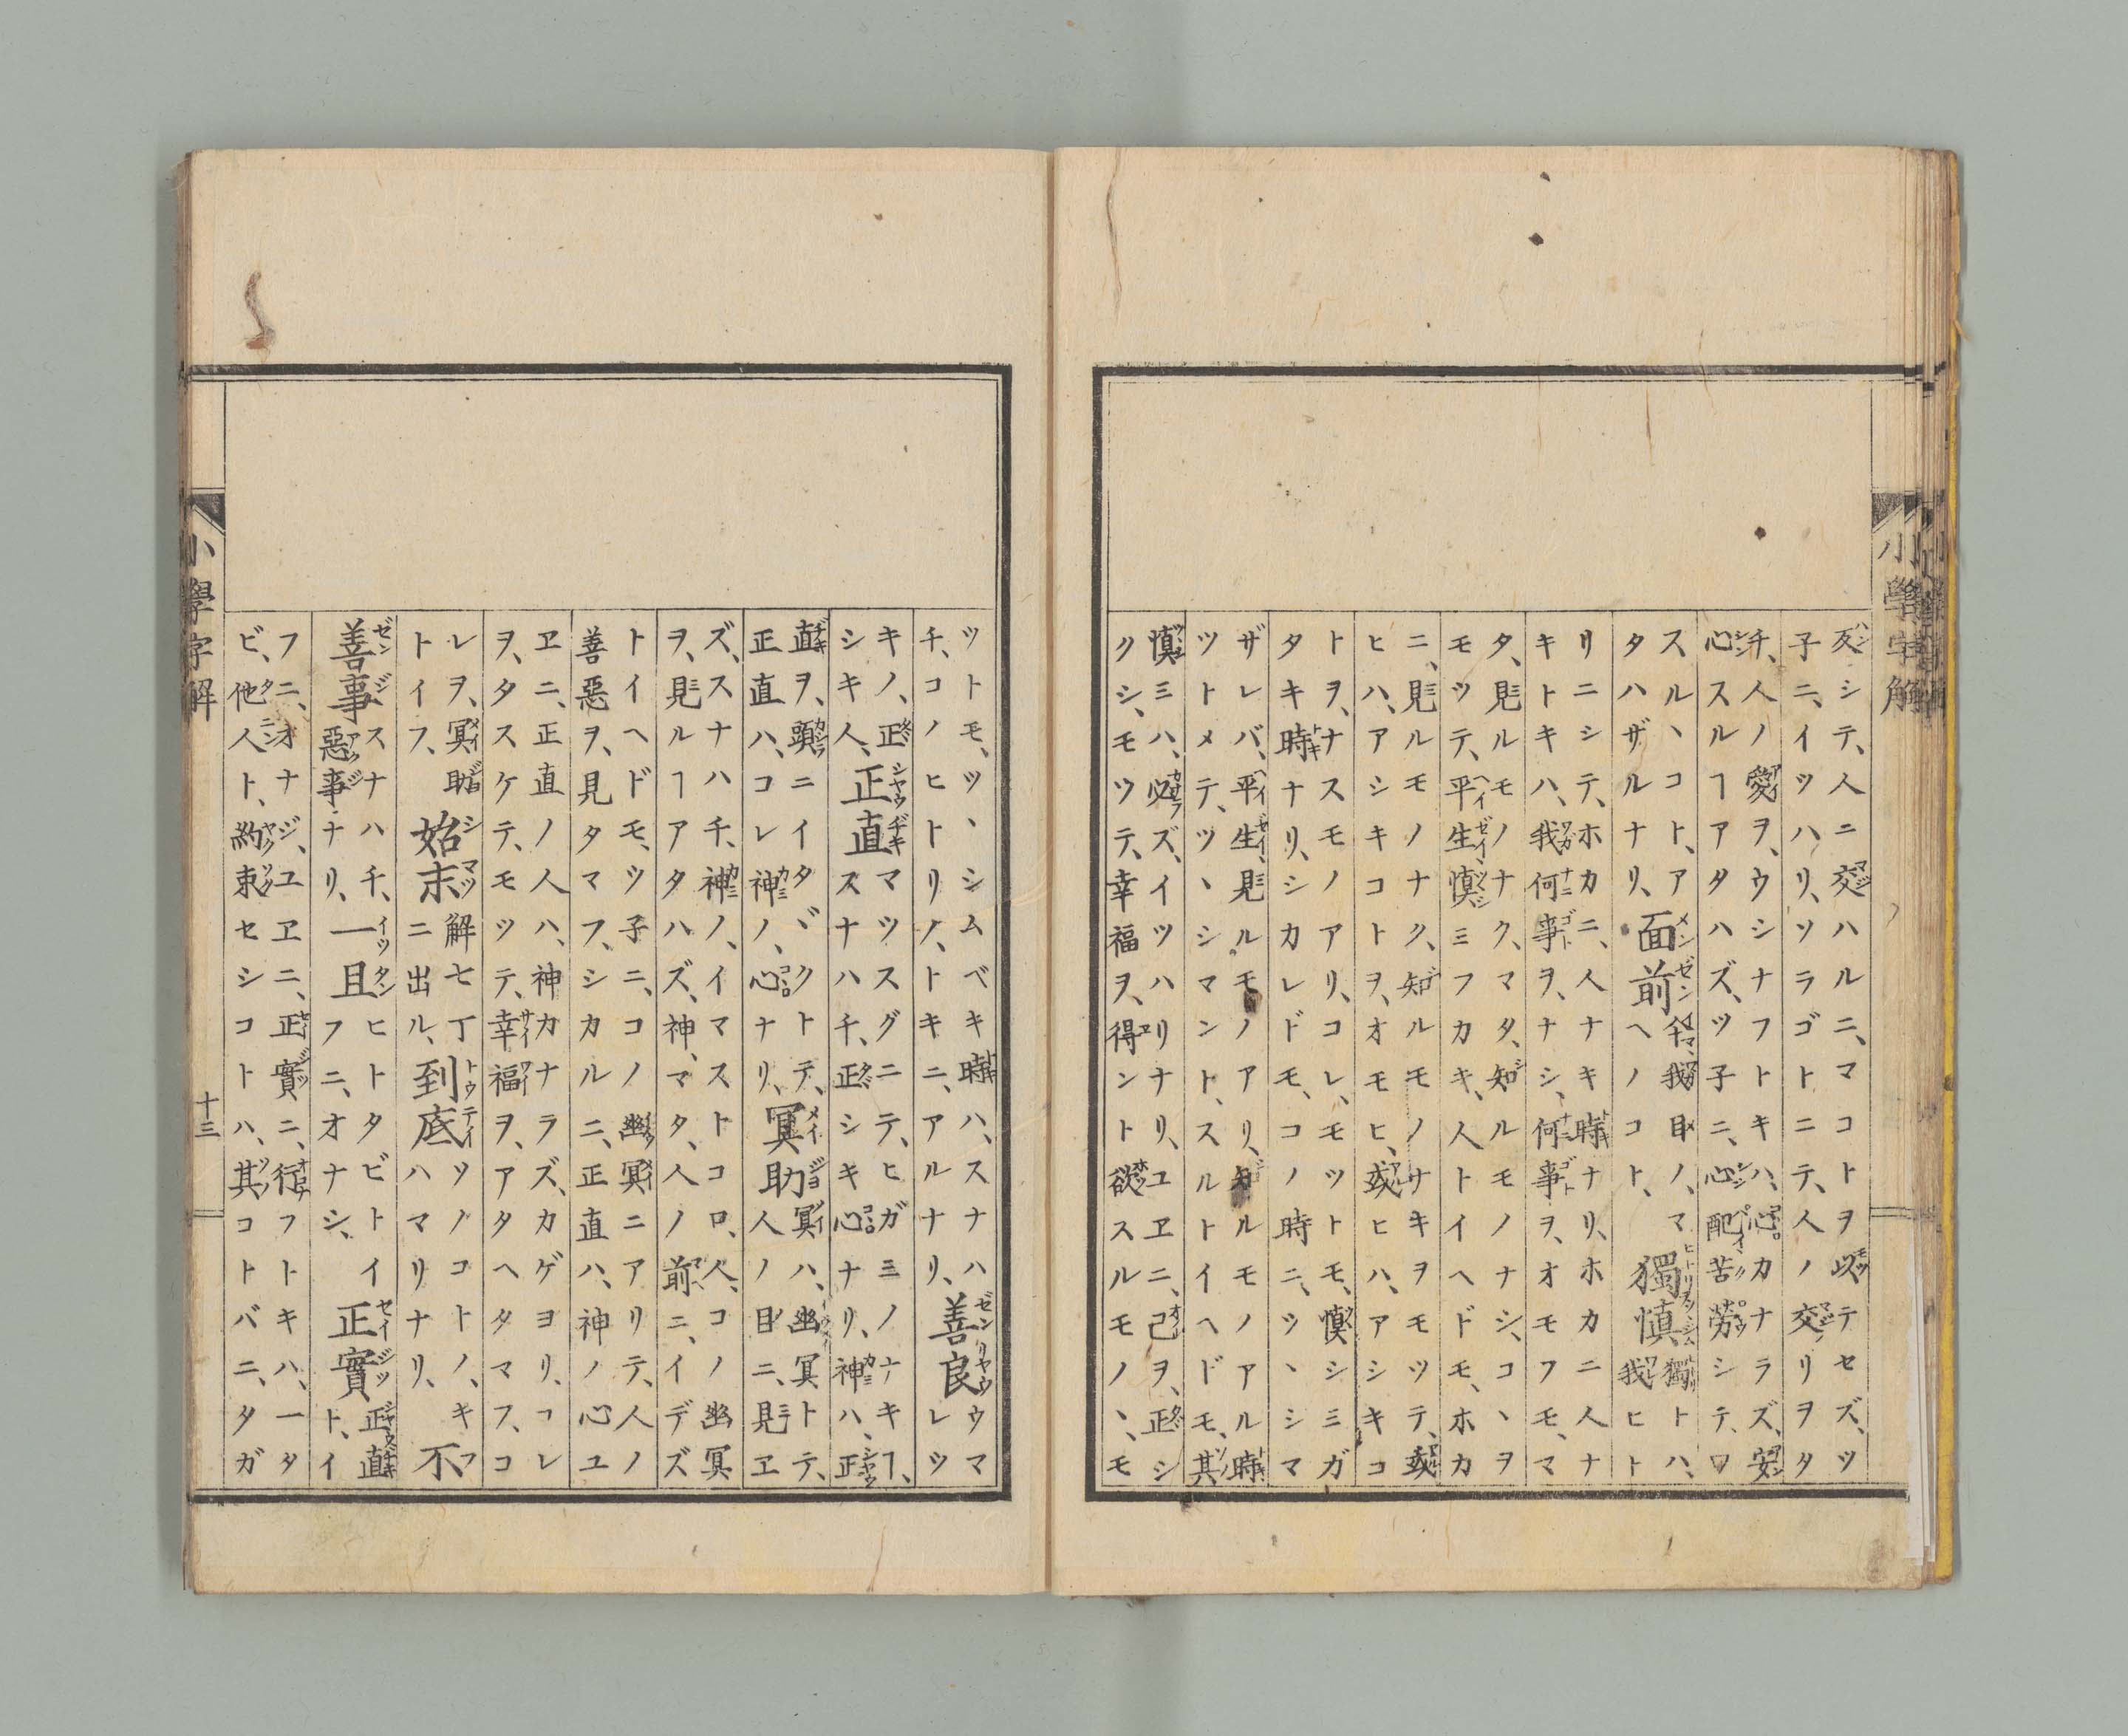 反シテ、人ニ交ハルニ、マコトヲ以テセズ、ツ
子ニ、イツハリ、ソラゴトニテ、人ノ交リヲタ
チ、人ノ愛ヲ、ウシナフトキハ、心カナラズ、安
心スルヿアタハズ、ツ子ニ、心配苦勞シテ、ワ
スルヽコト、ア
タハザルナリ、
面前
今、我目ノ、マ
ヘノコト、
獨慎
獨トハ、
我ヒト
リニシテ、ホカニ、人ナキ時ナリ、ホカニ人ナ
キトキハ、我何事ヲ、ナシ、何事ヲ、オモフモ、マ
タ、見ルモノナク、マタ、知ルモノナシ、コヽヲ
モツテ、平生、慎ミフカキ、人トイヘドモ、ホカ
ニ、見ルモノナク、知ルモノナキヲモツテ、或
ヒハ、アシキコトヲ、オモヒ、或ヒハ、アシキコ
トヲ、ナスモノアリ、コレ、モツトモ、慎シミガ
タキ時ナリ、シカレドモ、コノ時ニ、ツヽシマ
ザレバ、平生、見ルモノアリ、知ルモノアル時
ツトメテ、ツヽシマント、スルトイヘドモ、其
慎ミハ、必ズ、イツハリナリ、ユヱニ、己ヲ、正シ
クシ、モツテ、幸福ヲ、得ント欲スルモノヽ、モ
小學字解
ツトモ、ツヽシムベキ時ハ、スナハ
チ、コノヒトリノ、トキニ、アルナリ、
善良
ウマ
レツ
キノ、正
シキ人、
正直
マツスグニテ、ヒガミノナキヿ、
スナハチ、正シキ心ナリ、神ハ、正
直ヲ、頭ニイタヾクトテ、
正直ハ、コレ神ノ、心ナリ、
冥助
冥ハ、幽冥トテ、
人ノ目ニ、見ヱ
ズ、スナハチ、神ノ、イマストコロ、人、コノ幽冥
ヲ、見ルヿアタハズ、神、マタ、人ノ前ニ、イデズ
トイヘドモ、ツ子ニ、コノ幽冥ニアリテ、人ノ
善惡ヲ、見タマフ、シカルニ、正直ハ、神ノ心ユ
ヱニ、正直ノ人ハ、神カナラズ、カゲヨリ、コレ
ヲ、タスケテ、モツテ、幸福ヲ、アタヘタマフ、コ
レヲ、冥助
トイフ、
始末
解七丁
ニ出ル、
到底
ツノコトノ、キ
ハマリナリ、
不
善事
スナハチ、
惡事ナリ、
一旦
ヒトタビトイ
フニ、オナシ、
正實
正直
ト、イ
フニ、オナジ、ユヱニ、正實ニ、行フトキハ、一タ
ビ、他人ト、約束セシコトハ、其コトバニ、タガ
小學字解
十三